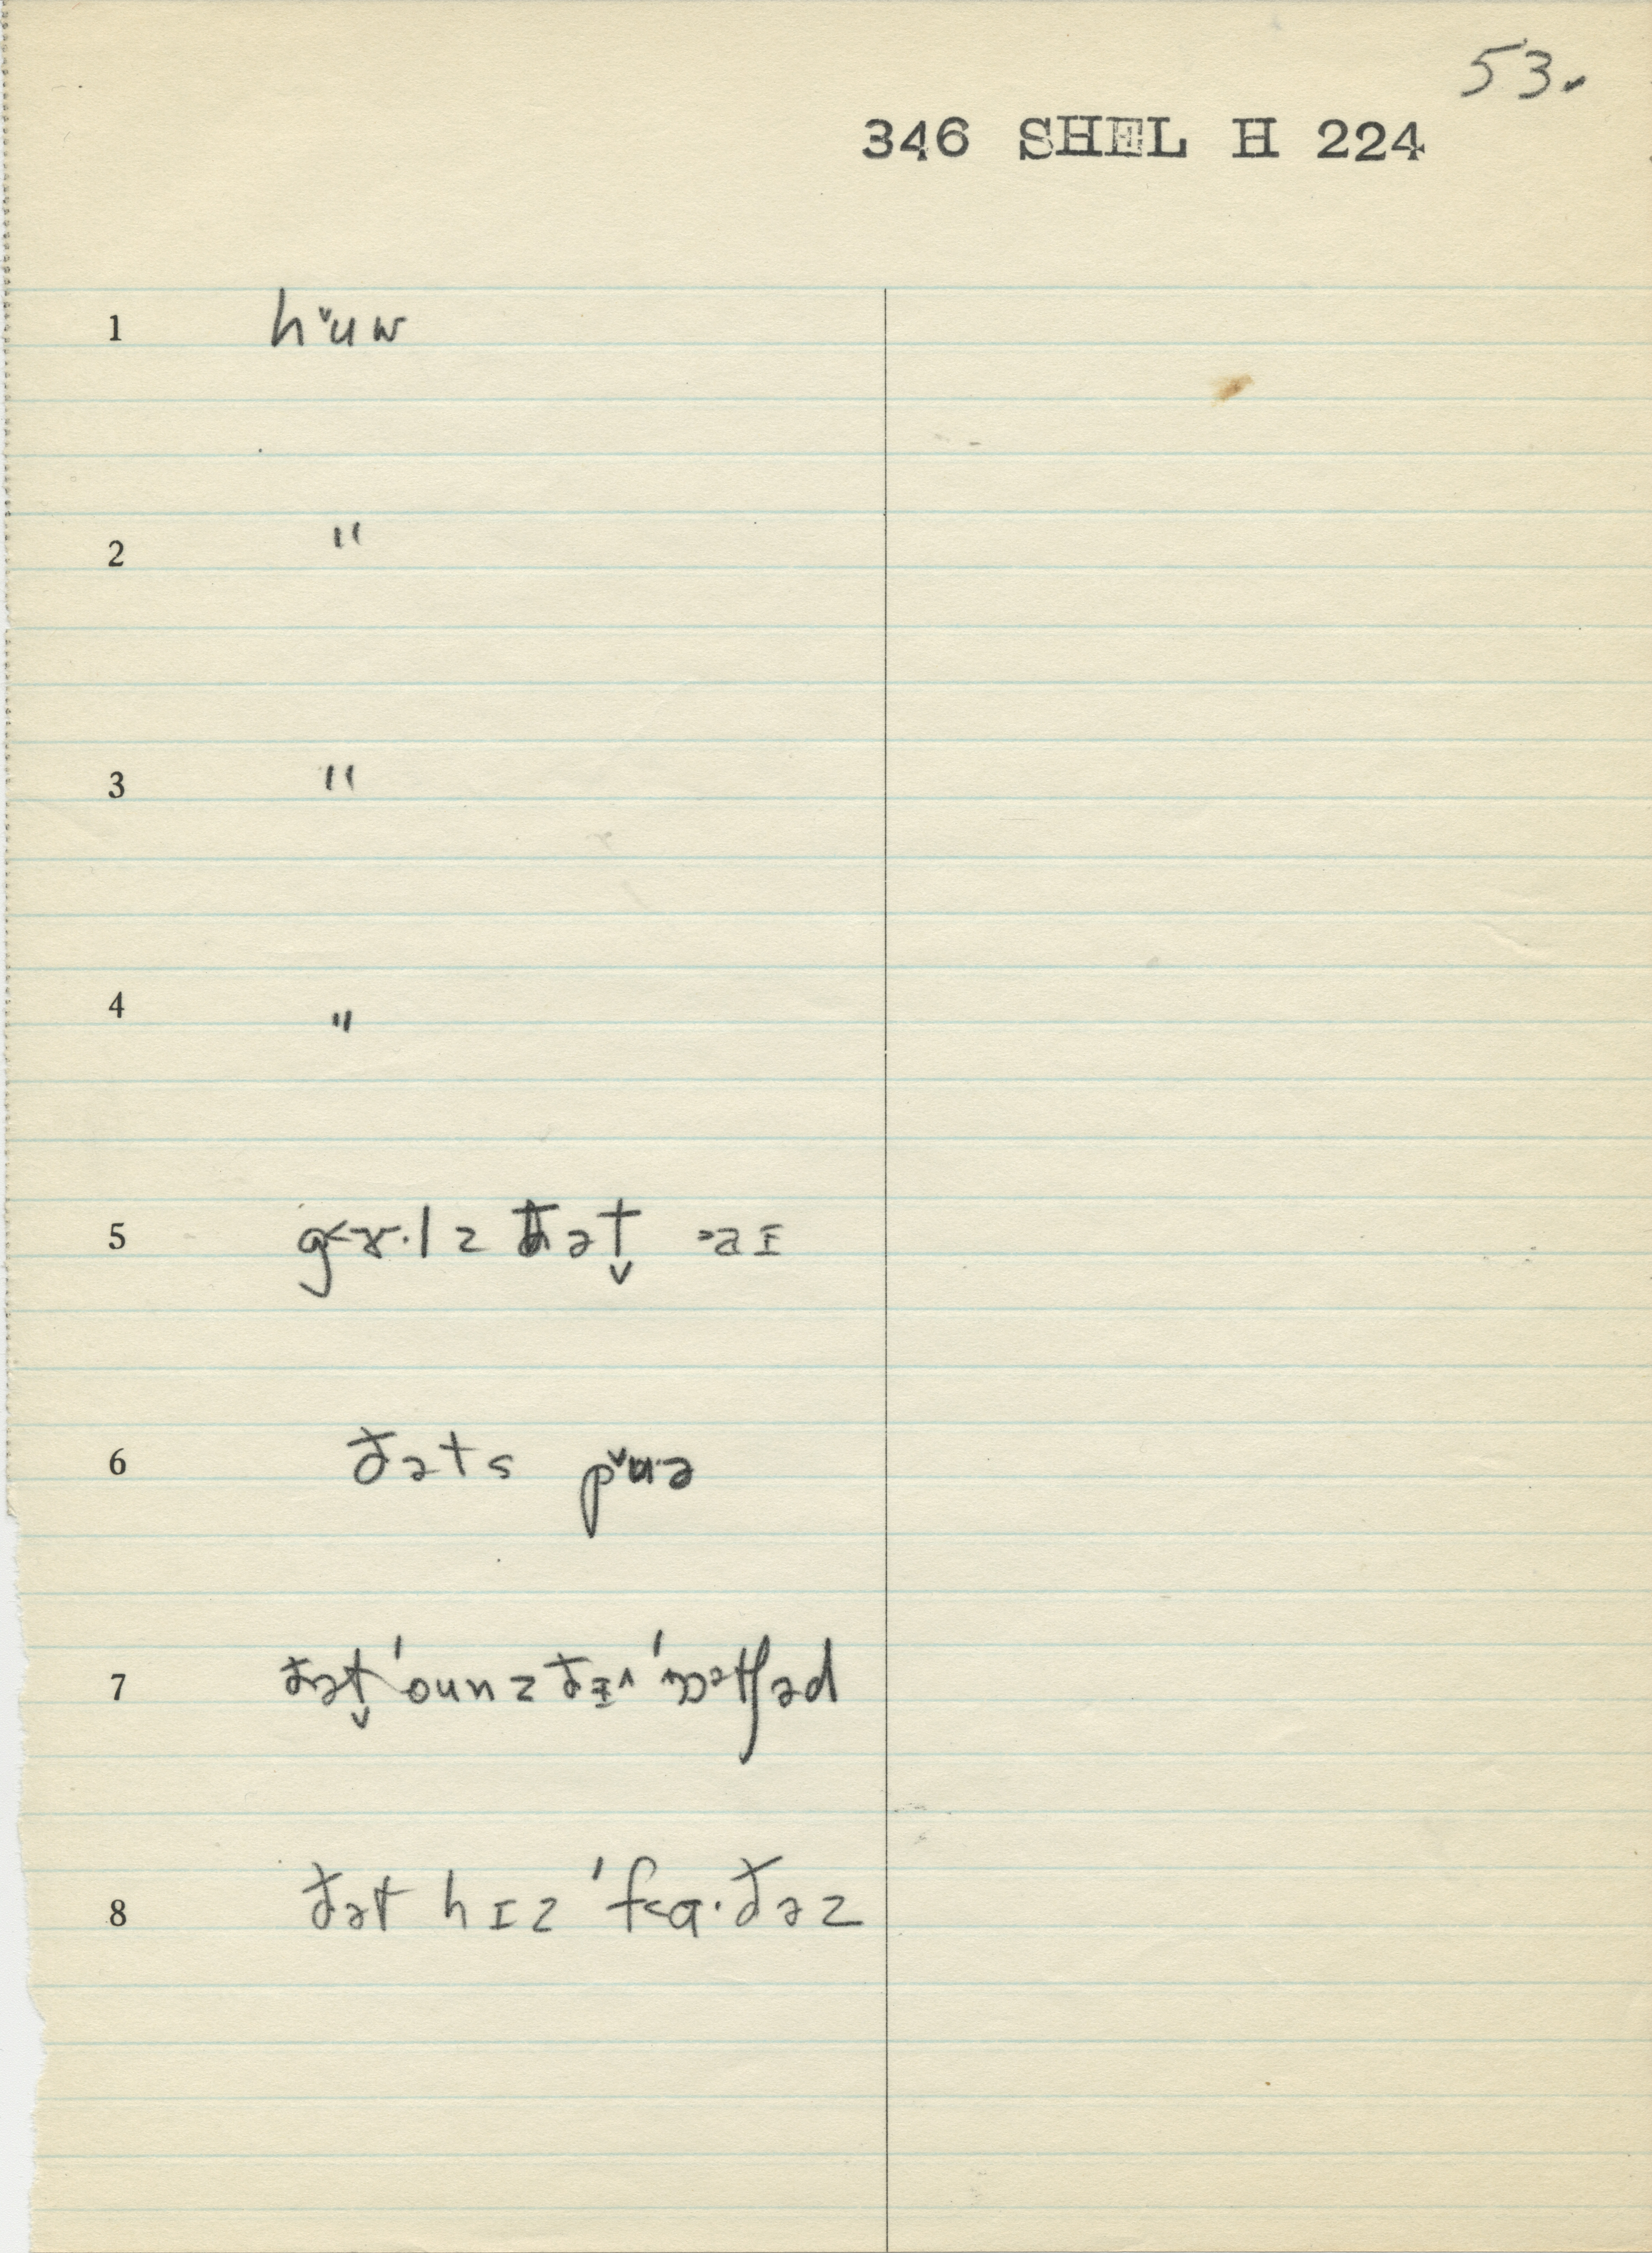 53.
346 SHEL H 224
1 h˅uw
2 "
3 "
4 "
5 g˂ɤ·lz ðət̬ ˃aɪ
6 ðəts p˅u·ə
7 ðət̬ ˈounz ðɪ˄ ˈɔətʃəd
8 ðət hɪz ˈf˂ɑ·ðəz